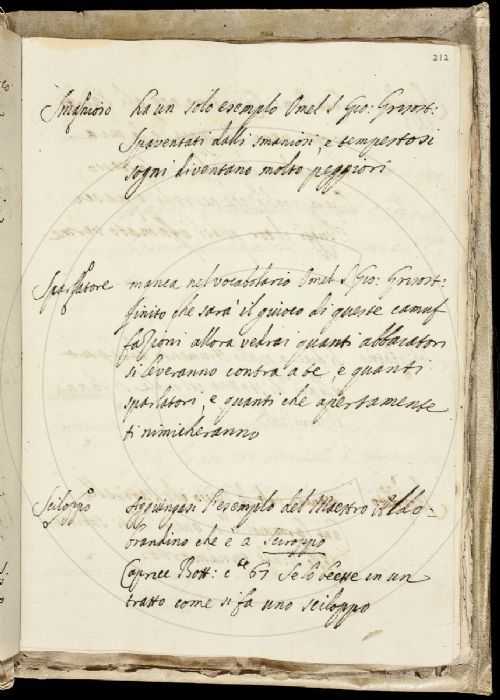 212
Smanioso ha un solo esempio Omel S Gio: Grisost:
Spaventati dalli smaniosi, e tempestosi
sogni diventano molto peggiori
Sparlatore manca nel vocabolario Omel S Gio: Grisost:
finito che sara' il giuoco di queste camuf
fazioni allora vedrai quanti abbaiatori
si leveranno contra a te, e quanti
sparlatori, e quanti che apertamente
ti nimicheranno
Sciloppo Aggiungasi l'esempio del Maestro Aldo-
brandino che è a sciroppo
Capricc Bott: c te 67 Se lo bevve in un
tratto come si fa uno sciloppo